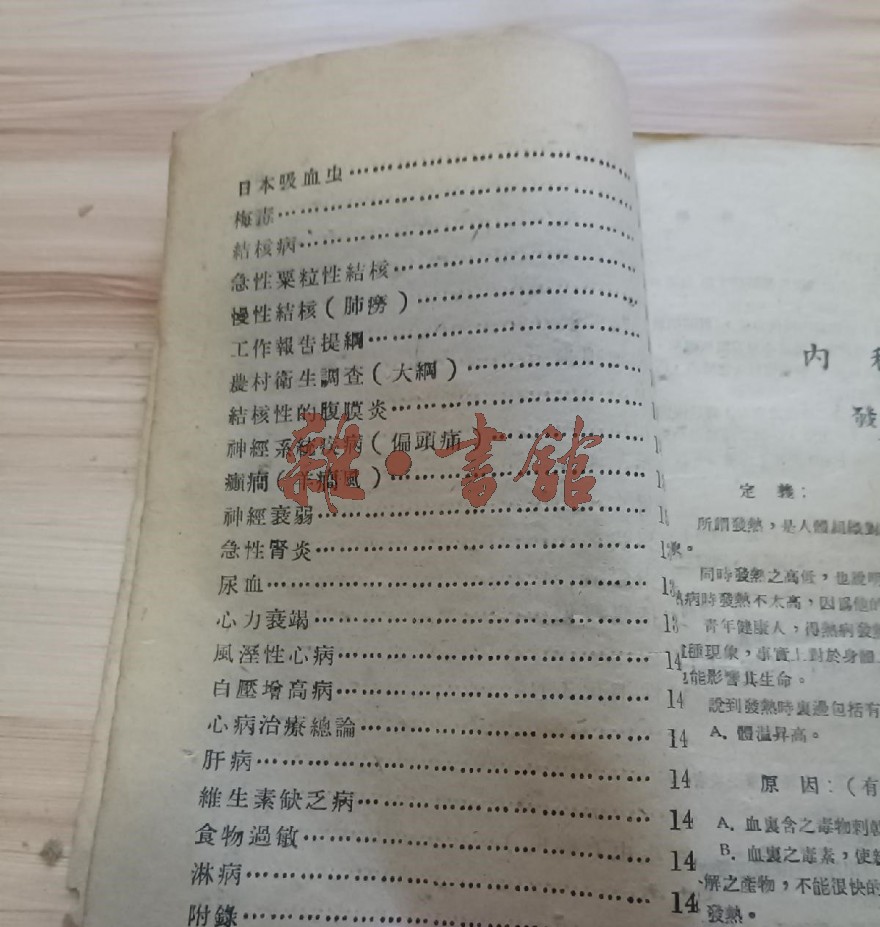 日本吸血虫……………………
梅毒……………………
結核病……………………
急性粟粒性結核……………………
慢性結核(肺癆)……………………
工作報告提綱……………………
農村衛生調查(大綱)……………………
結核性的腹膜炎……………………
神經系統疾病(偏頭痛)……………………1
癲癇(羊癇風)……………………1
神經衰弱……………………1
急性腎炎……………………1
尿血……………………13
心力衰竭……………………13
風溼性心病……………………14
白壓增高病……………………14
心病治療總論……………………14
肝病……………………14
維生素缺乏病……………………14
食物過敏……………………14
淋病……………………14
附錄……………………
雜·書館
內
發
定義:
所謂發熱,是人體組織對
。
同時發熱之高低,也說明
病時發熱不太高,因爲他的
青年健康人,得熱病發熱
種現象,事實上對於身體
能影響其生命。
說到發熱時裏邊包括有
A. 體溫昇高。
原因:(有
A. 血裏含之毒物刺
B. 血裏之毒素,使
解之產物,不能很快的
發熱。